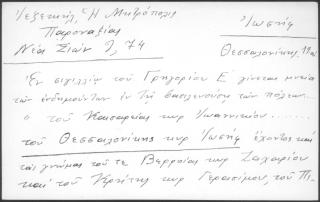 Ἰεζεκιήλ, Ἡ Μητρόπολις
Παροναξίας
Νέα Σιών 2, 74
Ἰωσήφ
Θεσσαλονίκης
Ἐν σιγιλλίῳ τοῦ Γρηγορίου Ε΄ γίνεται μνεία
τῶν ἐνδημούντων ἐν τῇ βασιλευούσῃ τῶν πόλεων
ὁ τοῦ Καισαρείας κυρ Ἰωαννικίου.....
τοῦ Θεσσαλονίκης κυρ Ἰωσήφ ἔχοντες καὶ
τὰς γνώμας τοῦ τε Βερροίας κυρ Ζαχαρίου
καὶ τοῦ Κρήτης κυρ Γερασίμου, τοῦ Πι-